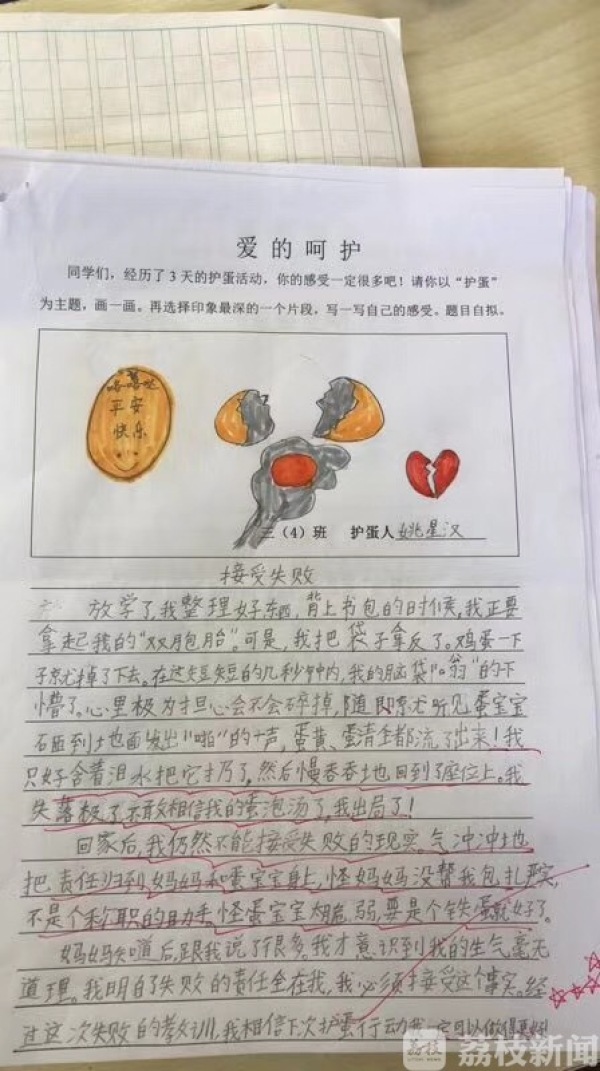 爱的呵护
同学们，经历了3天的护蛋活动，你的感受一定很多吧！请你以“护蛋”
为主题，画一画。再选择印象最深的一个片段，写一写自己的感受。题目自拟。
咯咯哒
平安
快乐
三（4）班 护蛋人姚星汉
接受失败
放学了，我整理好东西，背上书包的时候，我正要
拿起我的“双胞胎”。可是，我把袋子拿反了。鸡蛋一下
子就掉了下去。在这短短的几秒钟内，我的脑袋“嗡”的下
懵了。心里极为担心会不会碎掉，随即就听见蛋宝宝
砸到地面发出“啪”的一声，蛋黄、蛋清全都流了出来！我
只好含着泪水把它扔了，然后慢吞吞地回到了座位上。我
失落极了，不敢相信我的蛋泡汤了，我出局了！
回家后，我仍然不能接受失败的现实。气冲冲地
把责任归到妈妈和蛋宝宝身上，怪妈妈没帮我包扎严实，
不是个称职的助手。怪蛋宝宝太脆弱，要是个铁蛋就好了。
妈妈知道后，跟我说了很多。我才意识到我的生气毫无
道理。我明白了失败的责任全在我，我必须接受这个事实。经
过这次失败的教训，我相信下次护蛋行动我一定可以做得更好！
荔枝
荔枝新闻